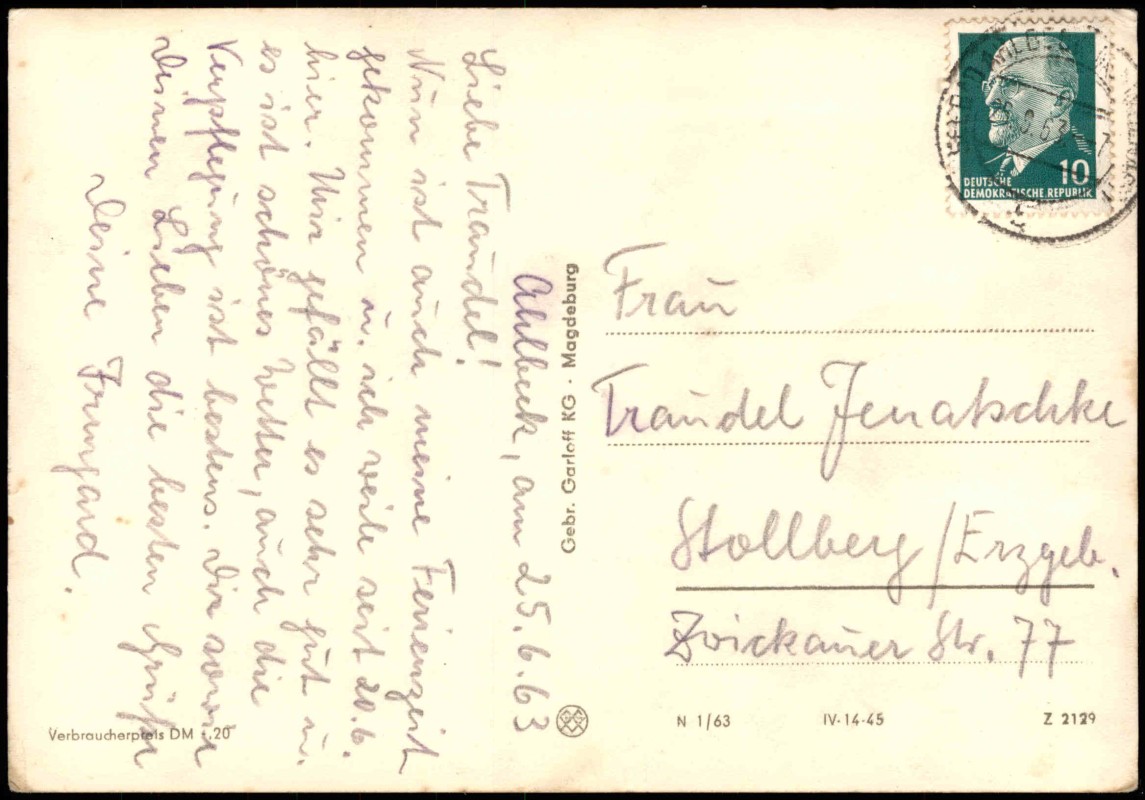 Ahlbeck, am 25.6.63
Liebe Traudel!
Nun ist auch meine Ferienzeit
gekommen u. ich weile seit 20.6.
hier. Mir gefällt es sehr gut u.
es ist schönes Wetter, auch die
Verpflegung ist bestens. Dir sowie
Deinen Lieben die besten Grüße
Deine Irmgard.
Verbraucherpreis DM -.20
Gebr. Garloff KG · Magdeburg
10
DEUTSCHE
DEMOKRATISCHE REPUBLIK
Frau
Traudel Jenatschke
Stollberg/Erzgeb.
Zwickauer Str. 77
N 1/63 IV-14-45 Z 2129